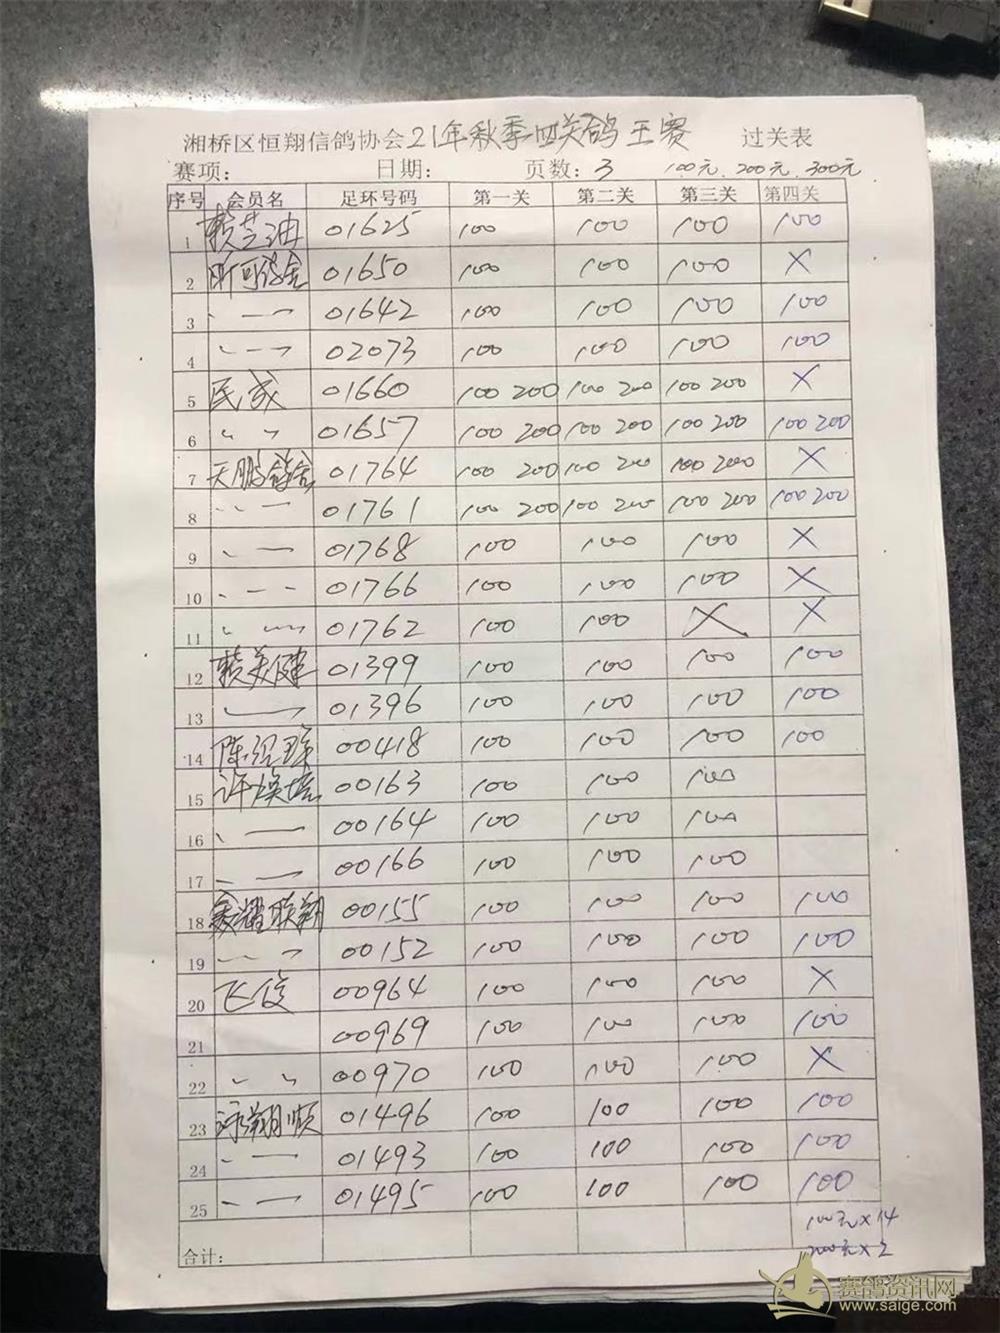 湘桥区恒翔信鸽协会21年秋季四关鸽王赛 过关表
赛项: 日期: 页数: 3 100元、200元、300元
序号 会员名 足环号码 第一关 第二关 第三关 第四关
1 赖芝油 01625 100 100 100 100
2 昕可鸽舍 01650 100 100 100 X
3 〃 — 01642 100 100 100 100
4 〃 — 02073 100 100 100 100
5 民成 01660 100 200 100 200 100 200 X
6 〃 〃 01657 100 200 100 200 100 200 100 200
7 天鹏鸽舍 01764 100 200 100 200 100 200 X
8 〃 — 01761 100 200 100 200 100 200 100 200
9 〃 — 01768 100 100 100 X
10 〃 — 01766 100 100 100 X
11 〃 — 01762 100 100 X X
12 赖美健 01399 100 100 100 100
13 〃 — 01396 100 100 100 100
14 陈绍 00418 100 100 100 100
15 许焕 00163 100 100 100
16 〃 — 00164 100 100 100
17 〃 — 00166 100 100 100
18 耀联翔 00155 100 100 100 100
19 〃 — 〃 00152 100 100 100 100
20 飞俊 00964 100 100 100 X
21 00969 100 100 100 100
22 〃 〃 00970 100 100 100 X
23 泳翔顺 01496 100 100 100 100
24 〃 — 01493 100 100 100 100
25 〃 — 01495 100 100 100 100
100元×14
合计: 200元×2
赛鸽资讯网
www.saige.com